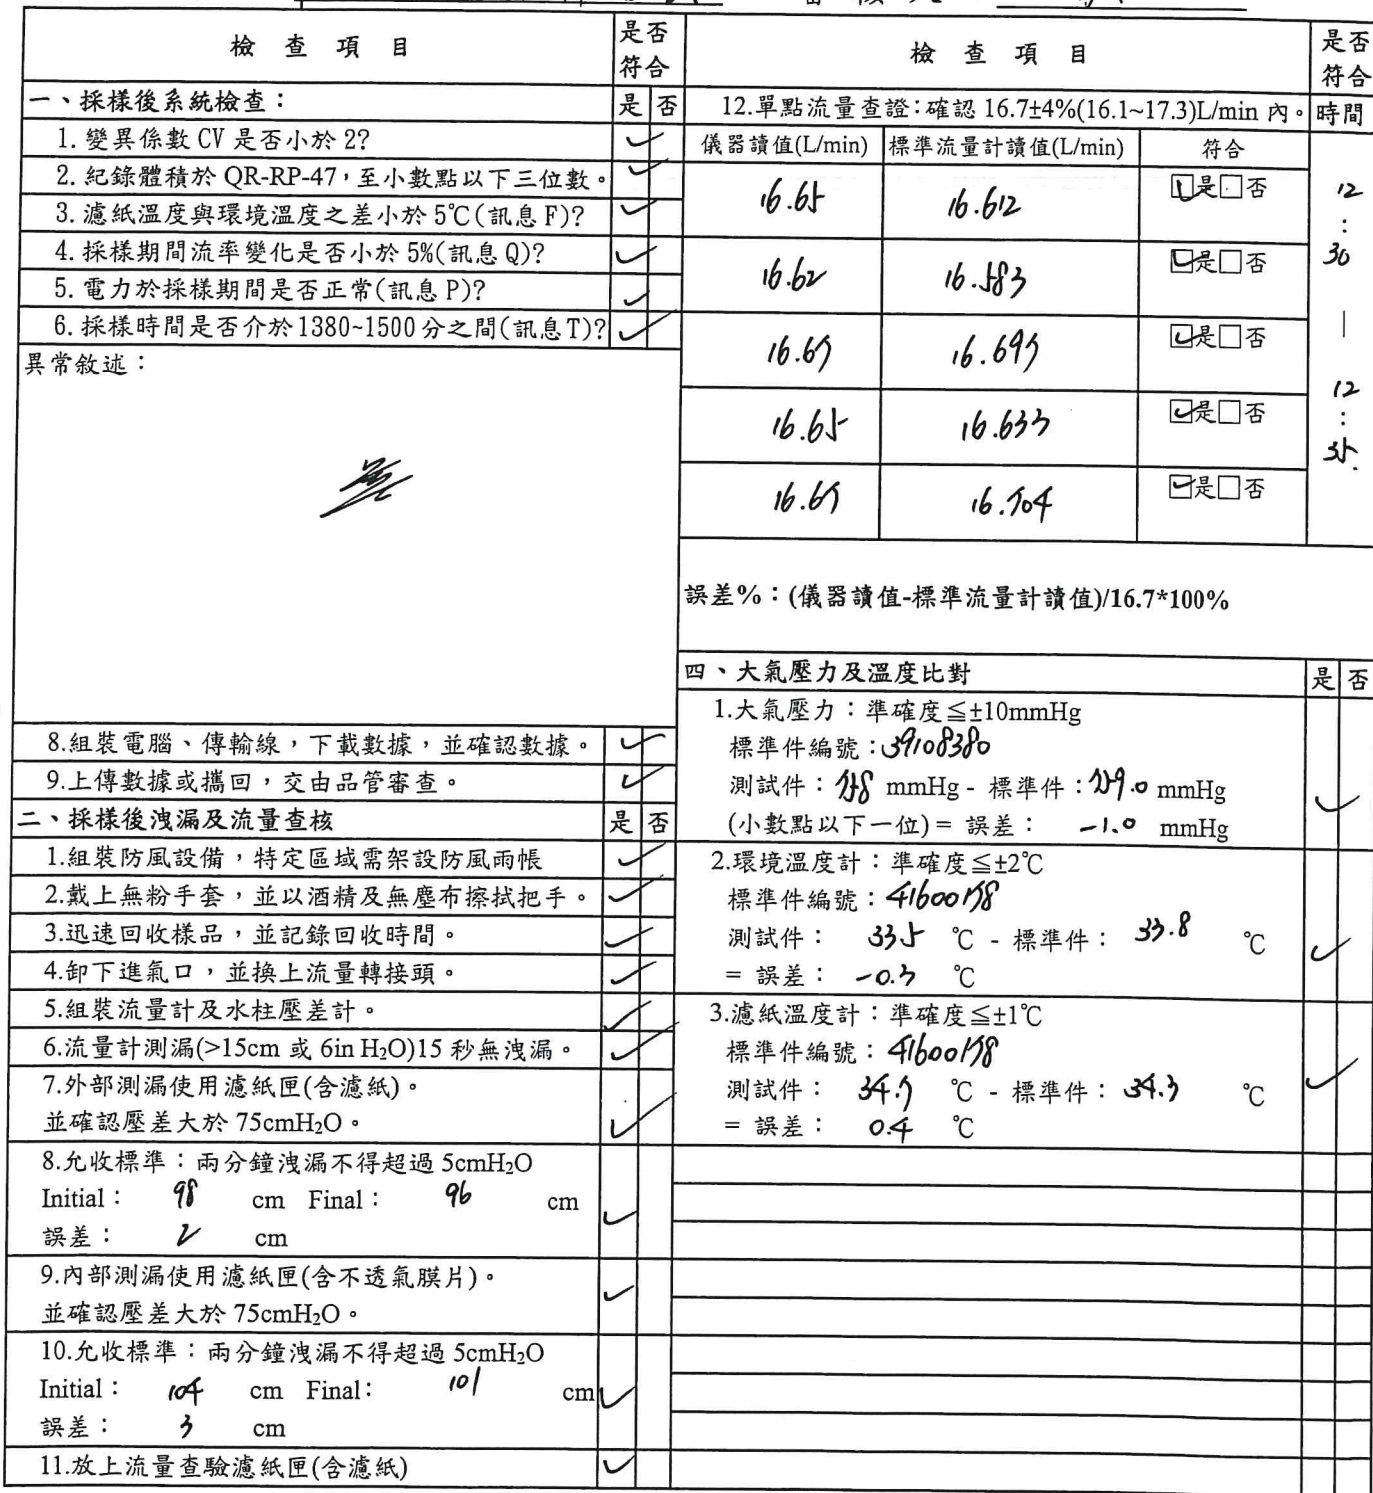 檢 查 項 目
是否
符合
一、採樣後系統檢查：
是 否
1. 變異係數 CV 是否小於 2?
2. 紀錄體積於 QR-RP-47，至小數點以下三位數。
3. 濾紙溫度與環境溫度之差小於 5℃(訊息 F)?
4. 採樣期間流率變化是否小於 5%(訊息 Q)?
5. 電力於採樣期間是否正常(訊息 P)?
6. 採樣時間是否介於 1380~1500 分之間(訊息 T)?
異常敘述：
無
8.組裝電腦、傳輸線，下載數據，並確認數據。
9.上傳數據或攜回，交由品管審查。
二、採樣後洩漏及流量查核 是 否
1.組裝防風設備，特定區域需架設防風雨帳
2.戴上無粉手套，並以酒精及無塵布擦拭把手。
3.迅速回收樣品，並記錄回收時間。
4.卸下進氣口，並換上流量轉接頭。
5.組裝流量計及水柱壓差計。
6.流量計測漏(>15cm 或 6in H₂O)15 秒無洩漏。
7.外部測漏使用濾紙匣(含濾紙)。
並確認壓差大於 75cmH₂O。
8.允收標準：兩分鐘洩漏不得超過 5cmH₂O
Initial： 98 cm Final： 96 cm
誤差： 2 cm
9.內部測漏使用濾紙匣(含不透氣膜片)。
並確認壓差大於 75cmH₂O。
10.允收標準：兩分鐘洩漏不得超過 5cmH₂O
Initial： 104 cm Final： 101 cm
誤差： 3 cm
11.放上流量查驗濾紙匣(含濾紙)
檢 查 項 目
是否
符合
12.單點流量查證：確認 16.7±4%(16.1~17.3)L/min 內。 時間
儀器讀值(L/min) 標準流量計讀值(L/min) 符合
16.65 16.612 ☑是□否
16.62 16.583 ☑是□否
16.67 16.697 ☑是□否
16.65 16.633 ☑是□否
16.67 16.704 ☑是□否
12:30 — 12:35
誤差%：(儀器讀值-標準流量計讀值)/16.7*100%
四、大氣壓力及溫度比對 是 否
1.大氣壓力：準確度≦±10mmHg
標準件編號：39108380
測試件：758 mmHg - 標準件：759.0 mmHg
(小數點以下一位) = 誤差： -1.0 mmHg
2.環境溫度計：準確度≦±2℃
標準件編號：41600758
測試件： 33.5 ℃ - 標準件： 33.8 ℃
= 誤差： -0.3 ℃
3.濾紙溫度計：準確度≦±1℃
標準件編號：41600758
測試件： 34.7 ℃ - 標準件： 34.3 ℃
= 誤差： 0.4 ℃